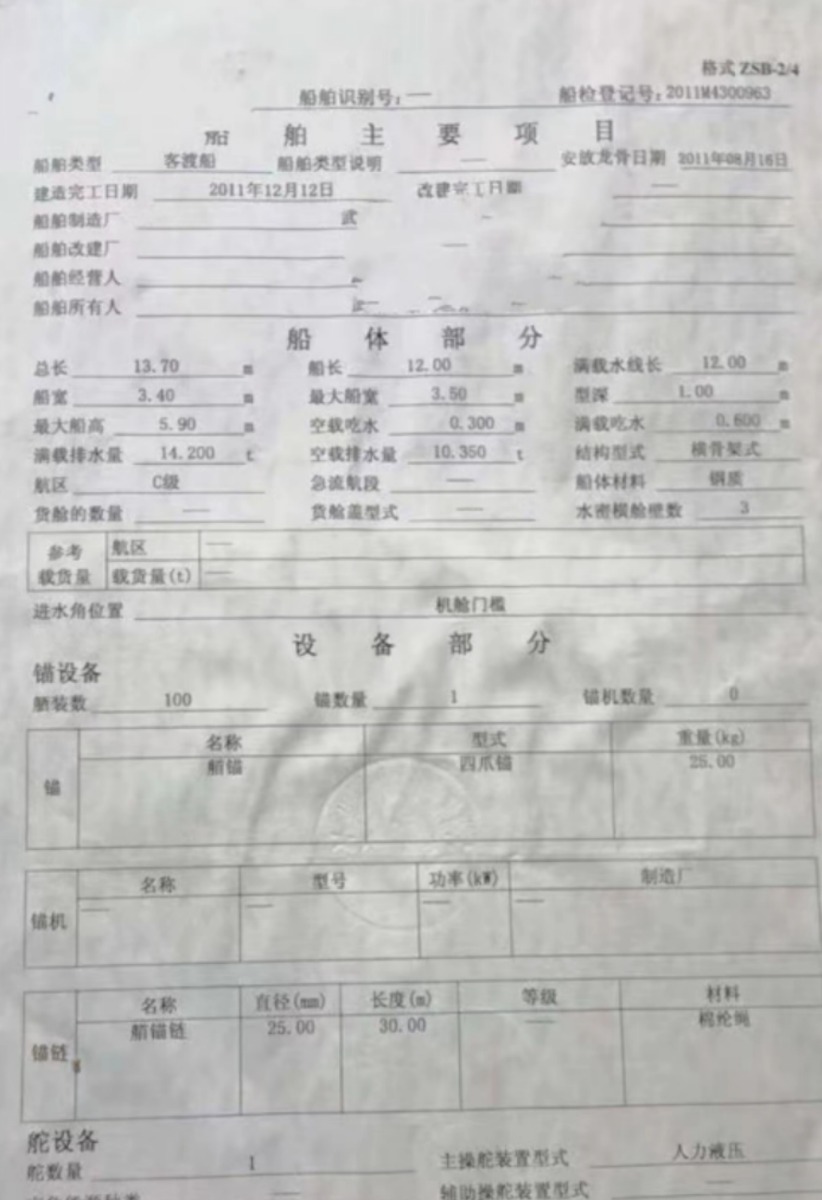 格式 ZSB-2/4
船舶识别号: — 船检登记号: 2011M4300963
船舶主要项目
船舶类型 客渡船 船舶类型说明 — 安放龙骨日期 2011年08月16日
建造完工日期 2011年12月12日 改建完工日期 —
船舶制造厂 武
船舶改建厂 —
船舶经营人
船舶所有人
船体部分
总长 13.70 m 船长 12.00 m 满载水线长 12.00 m
船宽 3.40 m 最大船宽 3.50 m 型深 1.00 m
最大船高 5.90 m 空载吃水 0.300 m 满载吃水 0.600 m
满载排水量 14.200 t 空载排水量 10.350 t 结构型式 横骨架式
航区 C级 急流航段 — 船体材料 钢质
货舱的数量 — 货舱盖型式 — 水密横舱壁数 3
参考载货量 航区 —
载货量(t) —
进水角位置 机舱门槛
设备部分
锚设备
舾装数 100 锚数量 1 锚机数量 0
锚 名称 型式 重量(kg)
艏锚 四爪锚 25.00
锚机 名称 型号 功率(kW) 制造厂
— — — —
锚链 名称 直径(mm) 长度(m) 等级 材料
艏锚链 25.00 30.00 — 棉纶绳
舵设备
舵数量 1 主操舵装置型式 人力液压
— 辅助操舵装置型式 —